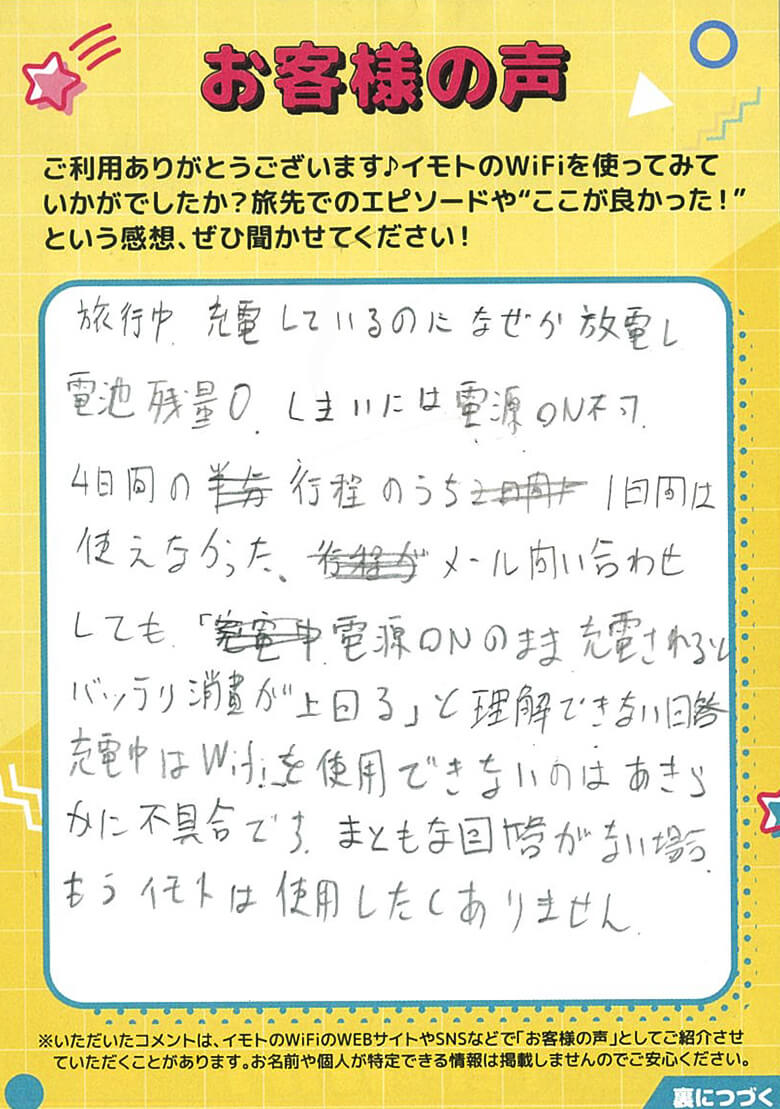 お客様の声
ご利用ありがとうございます♪イモトのWiFiを使ってみて
いかがでしたか？旅先でのエピソードや“ここが良かった！”
という感想、ぜひ聞かせてください！
旅行中、充電しているのになぜか放電し
電池残量0、しまいには電源ON不可。
4日間の 行程のうち 1日間は
使えなかった、 メール問い合わせ
しても、「 電源ONのまま充電されると
バッテリ消費が上回る」と理解できない回答
充電中はWifiを使用できないのはあきら
かに不具合です。まともな回答がない場合、
もうイモトは使用したくありません。
※いただいたコメントは、イモトのWiFiのWEBサイトやSNSなどで「お客様の声」としてご紹介させ
ていただくことがあります。お名前や個人が特定できる情報は掲載しませんのでご安心ください。
裏につづく